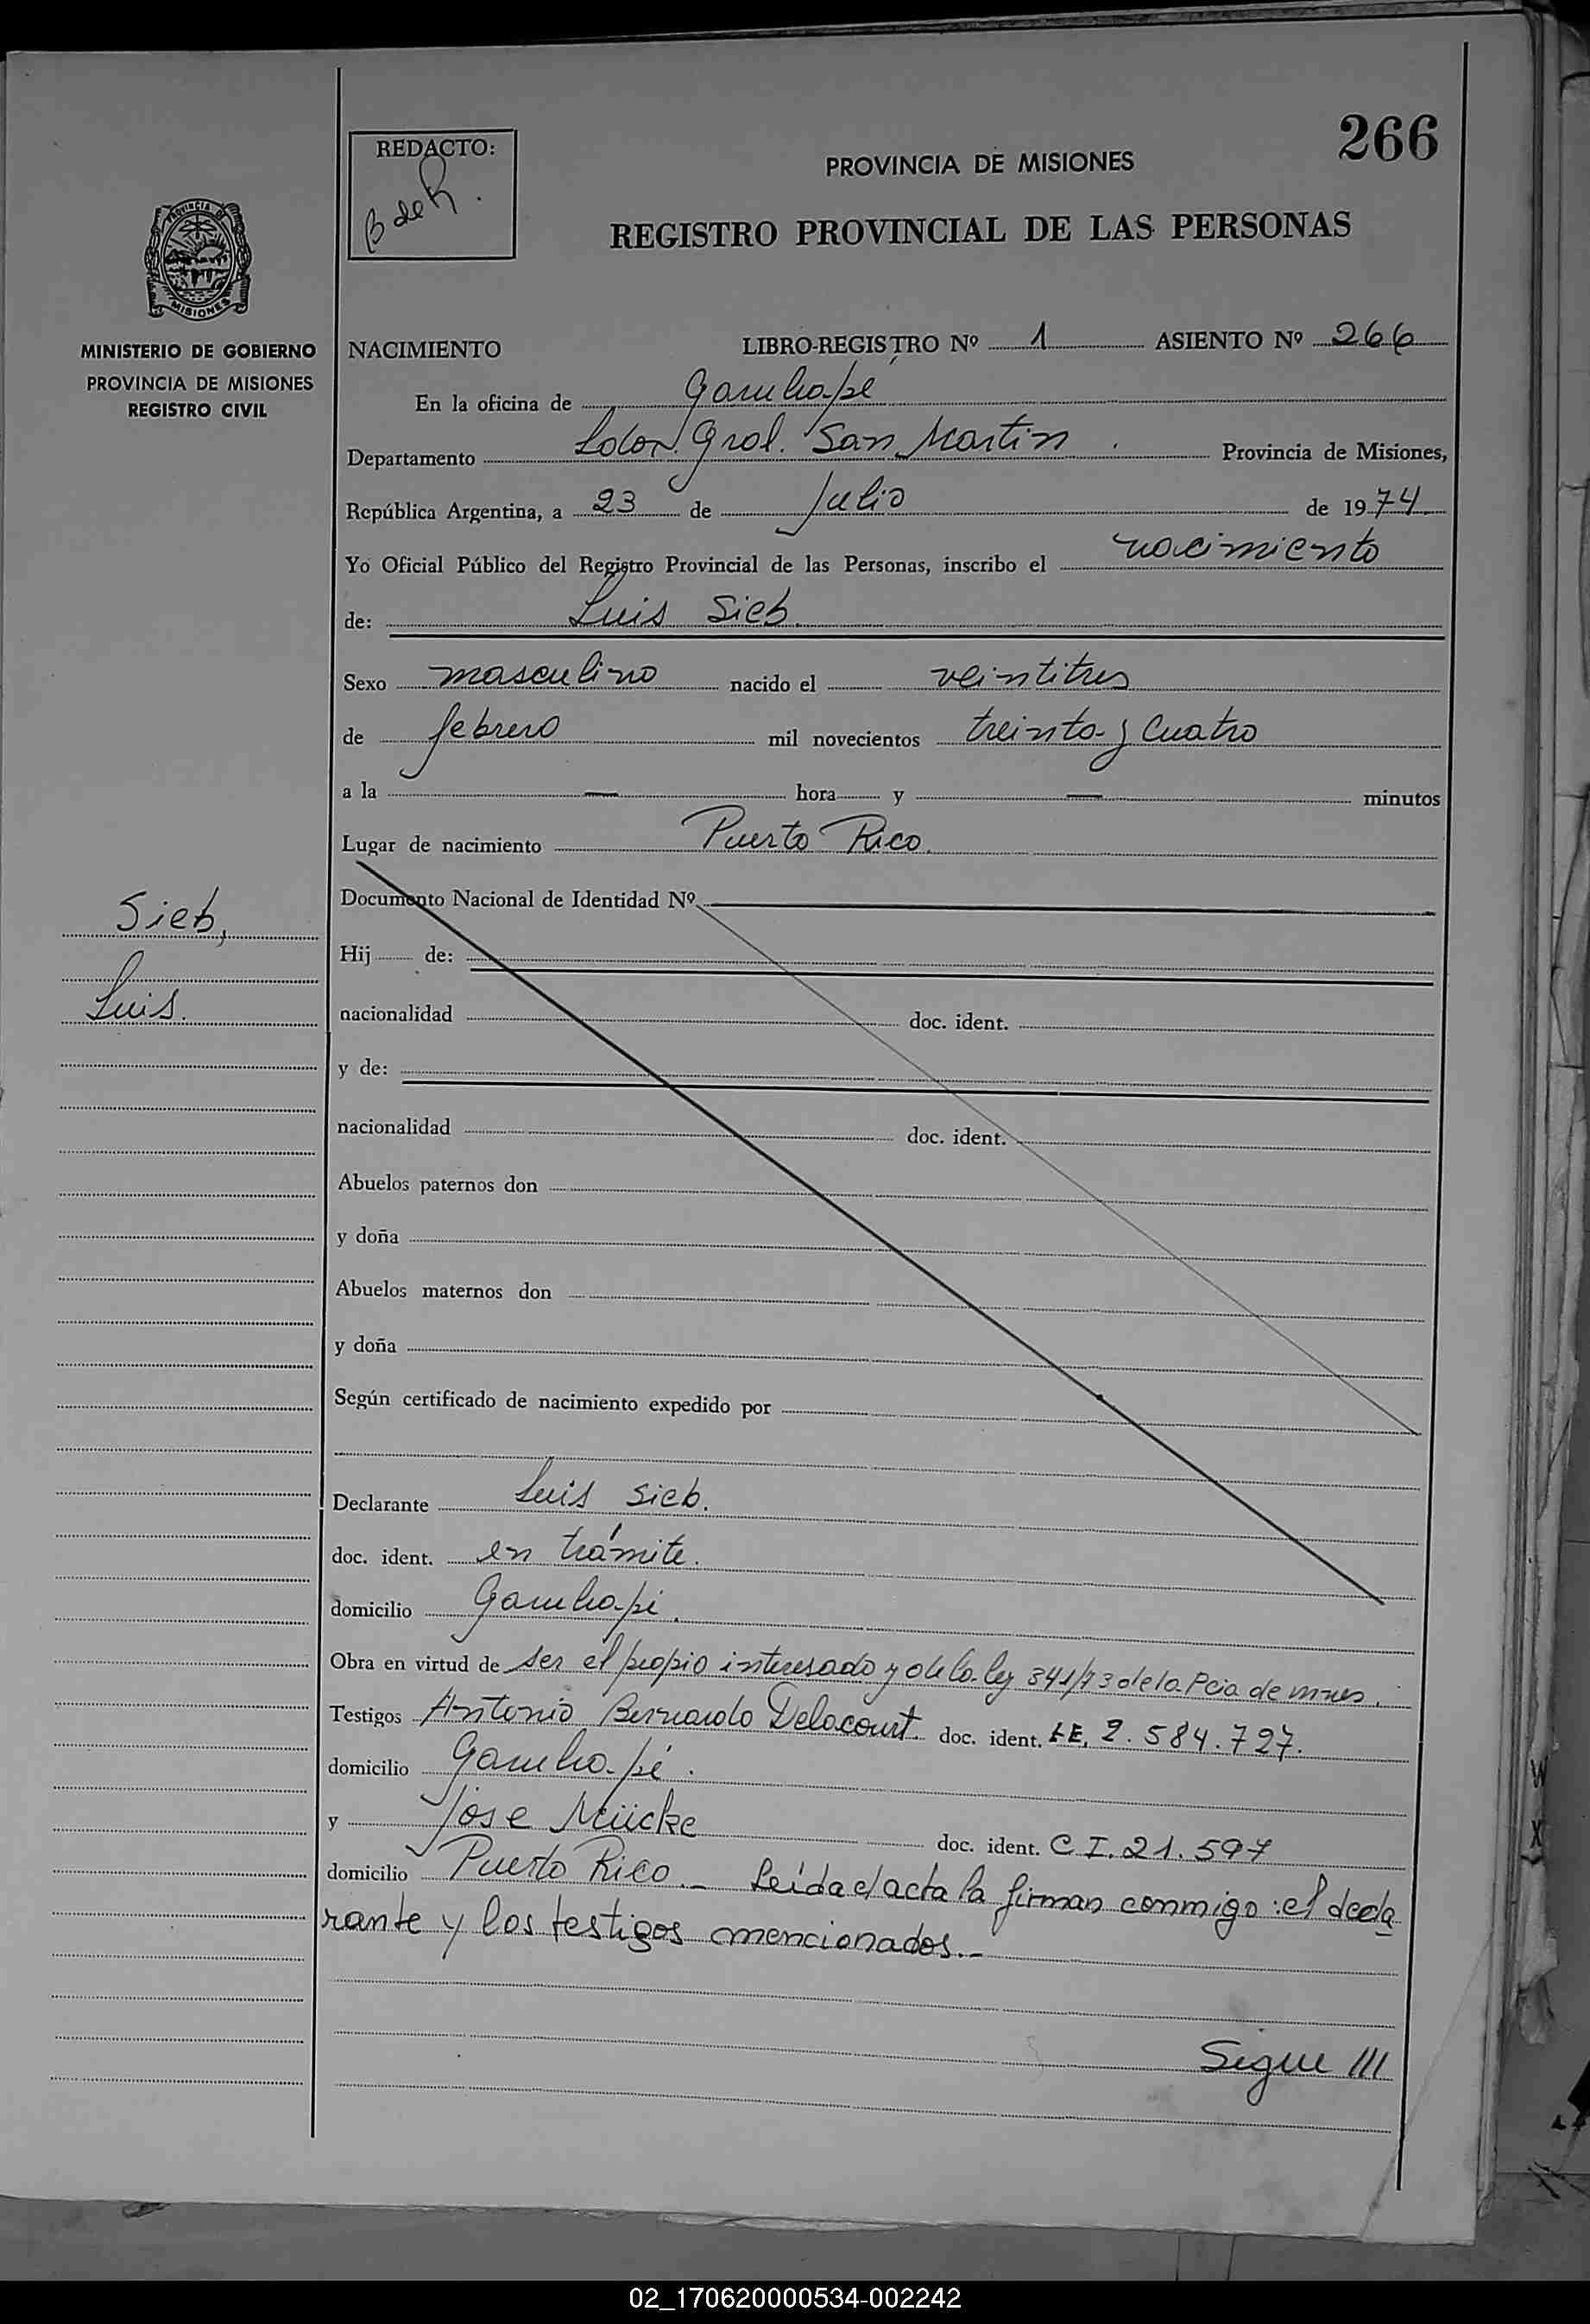 266
REDACTO:
B de R.
PROVINCIA DE MISIONES
REGISTRO PROVINCIAL DE LAS PERSONAS
PROVINCIA DE
MISIONES
MINISTERIO DE GOBIERNO
PROVINCIA DE MISIONES
REGISTRO CIVIL
NACIMIENTO LIBRO-REGISTRO Nº 1 ASIENTO Nº 266
En la oficina de Garuhapé
Departamento Ldor. Gral. San Martín. Provincia de Misiones,
República Argentina, a 23 de Julio de 1974.
Yo Oficial Público del Registro Provincial de las Personas, inscribo el nacimiento
de: Luis Sieb.
Sexo masculino nacido el veintitres
de febrero mil novecientos treinta y cuatro
a la — hora y — minutos
Lugar de nacimiento Puerto Rico.
Documento Nacional de Identidad Nº
Sieb,
Luis.
Hij de:
nacionalidad doc. ident.
y de:
nacionalidad doc. ident.
Abuelos paternos don
y doña
Abuelos maternos don
y doña
Según certificado de nacimiento expedido por
Declarante Luis Sieb.
doc. ident. en trámite.
domicilio Garuhapé.
Obra en virtud de ser el propio interesado y de la ley 341/73 de la Pcia de mnes.
Testigos Antonio Bernardo Delacourt. doc. ident. LE, 2.584.727.
domicilio Garuhapé.
y Jose Mücke doc. ident. C I. 21.597
domicilio Puerto Rico.- Leída el acta la firman conmigo: el decla
rante y los testigos mencionados.-
Sigue ///
02_170620000534-002242